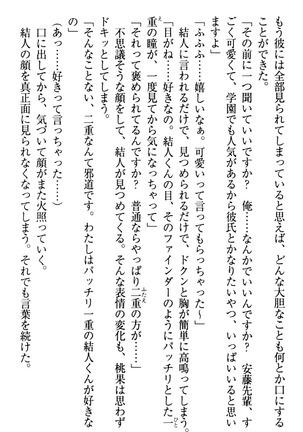 もう彼には全部見られてしまっていると思えば、どんな大胆なことも何とか口にする
ことができた。
「その前に一つ聞いていいですか？　俺……なんかでいいんですか？　安藤先輩、す
ごく可愛くて、学園でも人気があるから彼氏とかなりたいやつ、いっぱいいると思い
ますよ」
「ふふふ……嬉しいなぁ。可愛いって言ってもらっちゃった～」
結人に言われるだけで、見つめられるだけで、ドクンと胸が簡単に高鳴ってしまう。
「目がね……好きなの。結人くんの目、そのファインダーのようにパッチリとした一
重の瞳が、一度見てから気になっちゃって」
「それって褒められてるんですか？　普通ならやっぱり二重の方が……」
不思議そうな顔をして、結人が見つめてくる。そんな表情の変化も、桃果は思わず
ドキッとしてしまう。
「そんなことない、二重なんて邪道です。わたしはパッチリ一重の結人くんが好きな
の」
（あっ……好きって言っちゃった……）
口に出してから、気づいて顔がまた火照っていく。
結人の顔を真正面に見られなくなってしまう。それでも言葉を続けた。